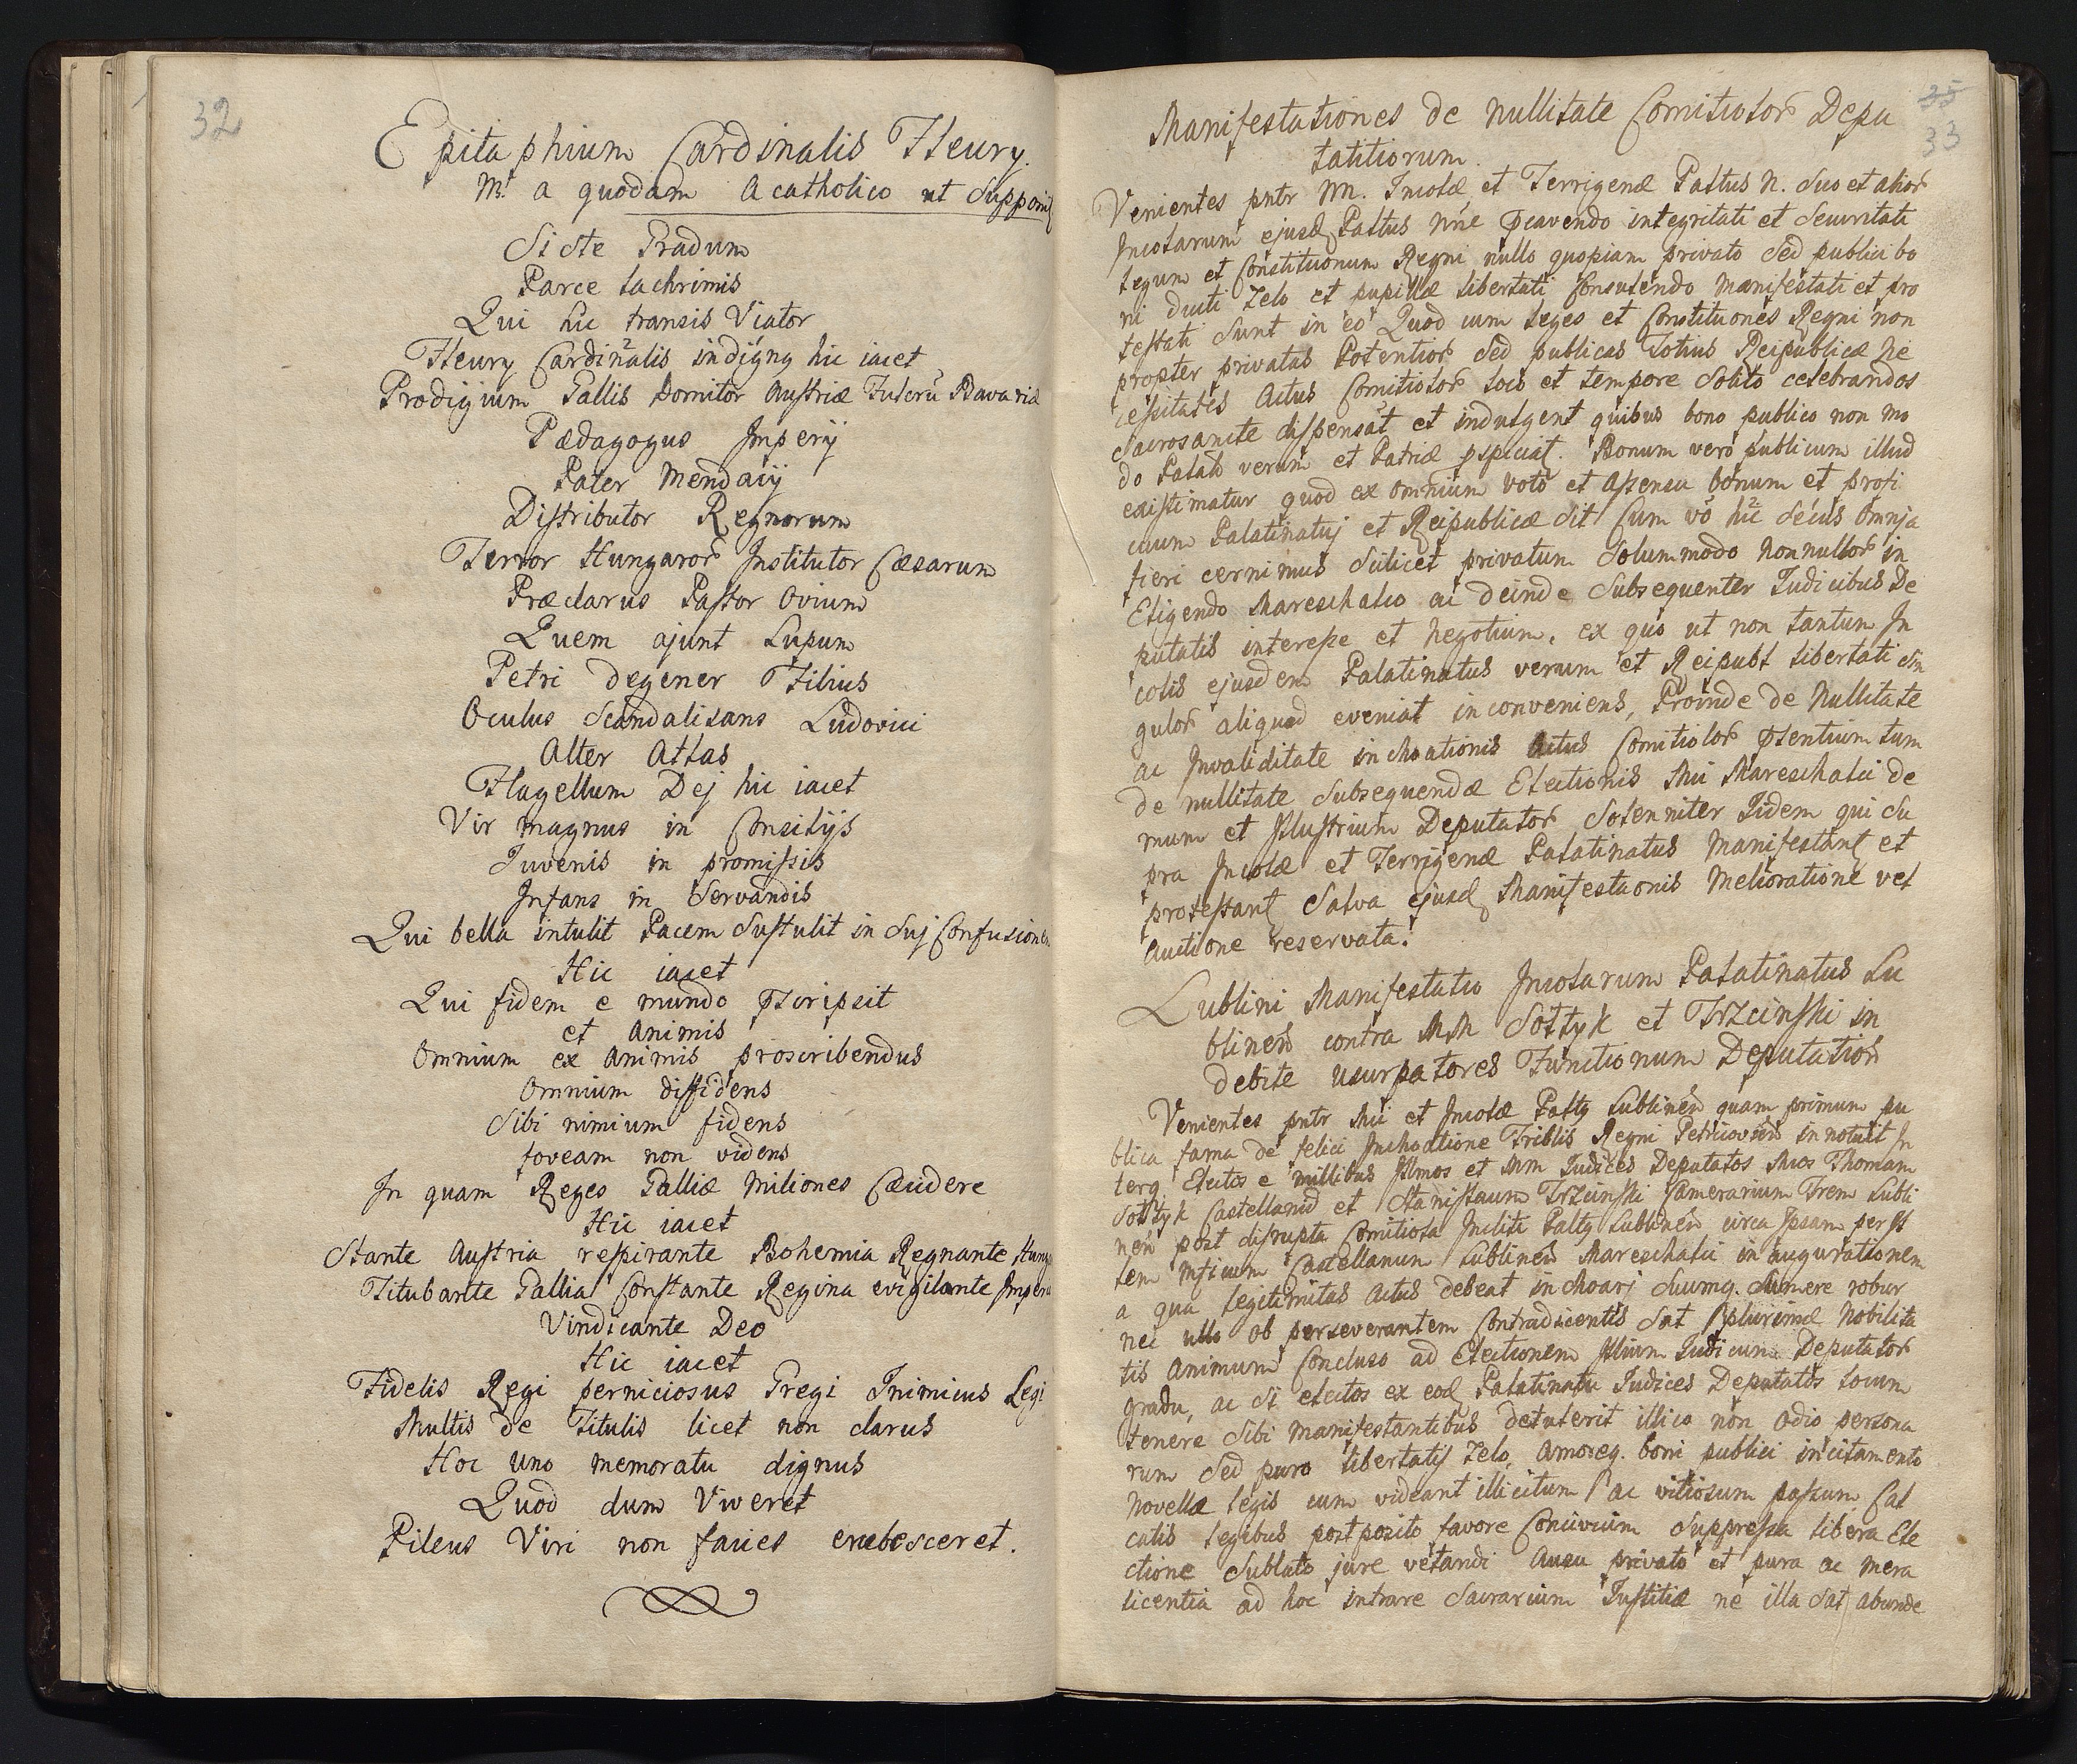 32
Epitaphium Cardinalis Fleury.
a quodam Acatholico ut Supponit
Siste Gradum
Parce Lachrimis
Qui hic transis Viator
Fleury Cardinalis indigng hic iacet
Prodigium Gallis Domitor Austriæ Bavariæ
Pædagogus Imperij
Pater Mendacij
Distributor Regnorum
Terror Hungaror Institutor Cæsarum
Præclarus Pastor Ovium
Quem ajunt Lupum
Petri degener Filius
Oculus Scandalisans Ludovici
Alter Atlas
Flagellum Dej hic iacet
Vir magnus in Consilijs
Juvenis in promissis
Infans in Servandis
Qui bella intulit Pacem Sustulit in Suj Confusionem
Hic iacet
Qui fidem e mundo
et Animis
Omnium ex Animis proscribendus
Omnium diffidens
Sibi nimium fidens
foveam non videns
In quam Reges Galliæ Miliones Cæcidere
Hic iacet
Stante Austria respirante Bohemia Regnante
Titubante Gallia Constante Regina evigilante
Vindicante Deo
Hic iacet
Fidelis Regi perniciosus Gregi Inimicus Legi
Multis de Titulis licet non clarus
Hoc Uno memoratu dignus
Quod dum Viveret
Pileus Viri non facies erubesceret.
35
33
Manifestationes de Nullitate Comitiolor Depu
tatitiorum.
Venientes pntr Incolæ et Terrigenæ N. Suo et alior
Incolarum ejusd integritati et Securitati
Legum et Constitutionum Regni nullo quopiam privato Sed publici bo
ni ducti Zelo et pupillæ Libertati Consulendo Manifestati et pro
testati Sunt in eo Quod cum Leges et Constitutiones Regni non
propter privatas Potentior Sed publicas Totius Reipublicæ Ne
cessitates Actus Comitiolor loco et tempore Solito celebrandos
Sacrosancte dispensat et indulgent quibus bono publico non mo
do Palatt verum et Patriæ Bonum vero publicum illud
existimatur quod ex omnium voto et Assensu bonum et profi
cuum Palatinatuj et Reipublicæ Sit Cum vo hic Secus Omnja
fieri cernimus Scilicet privatum Solummodo Nonnullor in
Eligendo Mareschalco ac deinde Subsequenter Judicibus De
putatis interesse et Negotium, ex quo ut non tantum In
colis ejusdem Palatinatus verum et Reipubl Libertati Sin
gulor aliquod eveniat inconveniens, Proinde de Nullitate
ac Invaliditate inchoationis Actus Comitiolor tum
de nullitate Subsequendæ Electionis Mareschalci de
mum et Illustrium Deputator Solenniter Iidem qui Su
pra Incolæ et Terrigenæ Palatinatus Manifestant et
protestant Salva ejusd Manifestaonis Melioratione vel
Auctione reservata.
Lublini Manifestatio Incolarum Palatinatus Lu
blinen contra MM Sołtyk et Trzcinski in
debite usurpatores Functionum Deputatior
Venientes pntr et Incolæ Lublinen quam primum pu
blica fama de felici Inchoatione Triblis Regni in notuit In
terq Electos e millibus Illmos et Judices Deputatos Thomam
Sołtyk Castellanid et Stanislaum Trzcinski Lubli
nen post disrupta Comitiola Incliti Lublinen circa Ipsam
tem Castellanum Lublinen Mareschalci in augurationem
a qua legitimitas Actus debeat inchoarj Suumq. Sumere robur
nec ullo ob perseverantem Contradicentis Sat plurimæ Nobilita
tis Animum Concluso ad Electionem Judicum Deputator
gradu, ac Si electos ex eod Palatinatu Judices Deputatos locum
tenere Sibi Manifestantibus detulerit illico non Odio persona
rum Sed puro libertatis Zelo, Amoreq. boni publici incitamento
Novellæ Legis cum videant illicitum ac vitiosum passum Cal
catis Legibus postposito favore Concivium Suppressa libera Ele
ctione Sublato jure vetandi Ausu privato et pura ac mera
licentia ad hoc intrare Sacrarium Justitiæ ne illa Sat abunde